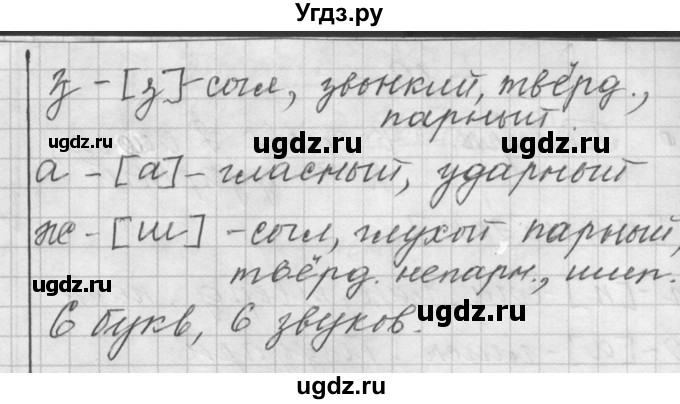 Угдз.ру
з - [з] - согл, звонкий, твёрд.,
парный.
ugdz.ru ugdz.ru
а - [а] - гласный, ударный
ugdz.ru
ж - [ш] - согл, глухой парный,
твёрд. непарн., шип.
ugdz.ru ugdz.ru
6 букв, 6 звуков.
ugdz.ru
ugdz.ru